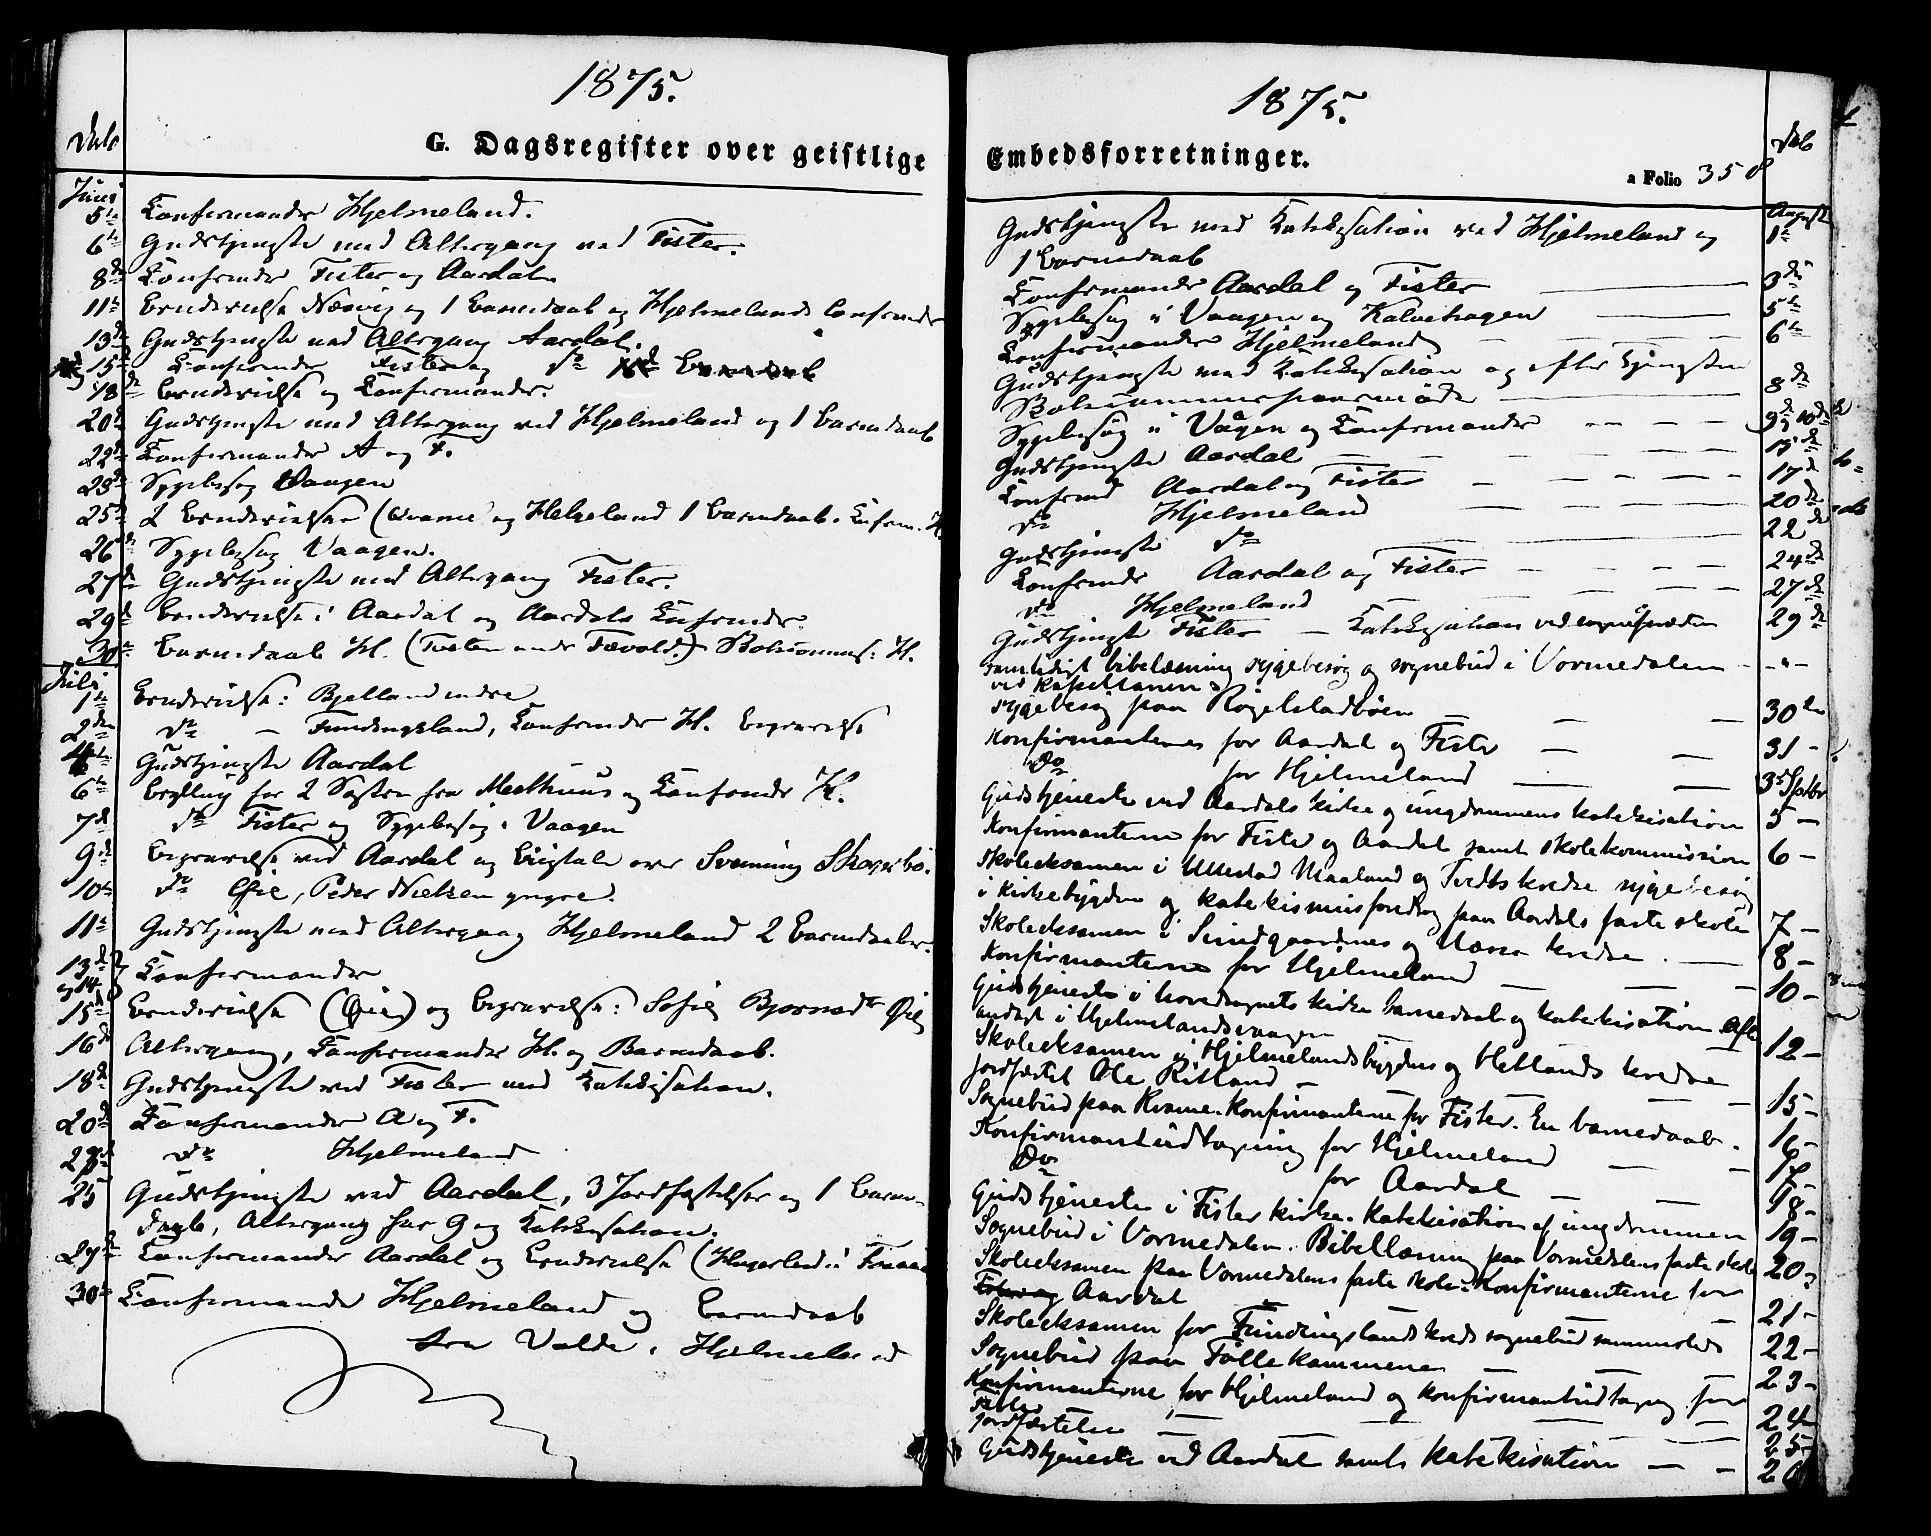 1875.
Dato
G. Dagsregister over geistlige
Juni
5te Konfirmander Hjelmeland.
6te Gudstjeneste med Altergang ved Fister.
8de Konfirmander Fister og Aardal
11te Berettelse Næsvig og 1 Barnedaab og Hjelmelands Confirmander
13de Gudstjeneste med Altergang Aardal.
15de Konfirmander Fister og
18de Berettelse og Konfirmander.
20de Gudstjeneste med Altergang ved Hjelmeland og 1 Barnedaab
22de Konfirmander A og F.
23de Sygebesøg Vaagen
25de 2 Berettelser (Kvame og Helgeland 1 Barnedaab. Konfirm. H.
26de Sygebesøg Vaagen.
27de Gudstjeneste med Altergang Fister.
29de Berettelse i Aardal og Aardals Konfirmander
30te Barnedaab H. Skolekommis: H.
Juli
1te Berettelse: Bjelland indre
2den do — Fundingsland, Konfirmander H. Begravelse
4de Gudstjeneste Aardal
6te Bryllup for 2 Søstre fra Melhuus og Konfirmander H.
7de do Fister og Sygebesøg i Vaagen
9de Begravelse ved Aardal og Ligtale over
10de do Øie, Peder Nielsen yngre.
11te Gudstjeneste med Altergang Hjelmeland 2 Barnedaaber.
13de og 14 Konfirmander
15de Berettelse (Øie) og Begravelse: Sofie Bjørnsdtr Øie
16de Altergang, Konfirmander H. og Barnedaab.
18de Gudstjeneste ved Fister med Katekisation.
20de Konfirmander A og F.
do Hjelmeland
25 Gudstjeneste ved Aardal, 3 Jordfæstelser og 1 Barne-
daab, Altergang for 9 og Katekisation.
27de Konfirmander Aardal og Berettelse
30te Konfirmander Hjelmeland og Barnedaab
fra Valde, Hjelmeland
1875.
Embedsforretninger.
a Folio 358
Dato
August
Gudstjeneste med Katekisation ved Hjelmeland og 1te
1 Barnedaab
Konfirmander Aardal og Fister — 3die
Sygebesøg i Vaagen og Kalvehagen — 5te
Konfirmander Hjelmeland — 6te
Gudstjeneste med Katekisation og efter Tjenesten
— 8de
Sygebesøg i Vågen og Konfirmander — 9de 10de
Gudstjeneste Aardal — 15de
Konfirmd Aardal og Fister — 17de
do Hjelmeland — 20de
Gudstjeneste do — 22de
Konfirmd Aardal og Fister — 24de
do Hjelmeland — 27de
Gudstjenst Fister — Katekisation ved sognepræsten 29de
samtidigt bibelæsning sygebesøg og sognebud i Vormedalen — " —
ved kapellanen
sygebesøg paa Rigelstadbøen — 30te
Konfirmanterne for Aardal og Fister — 31 —
Do for Hjelmeland — 3 Septbr
Gudstjeneste ved Aardals kirke og ungdommens katekisation 5 —
Konfirmanterne for Fister og Aardal samt skolekommission 6 —
Skoleeksamen i Ullestad Maaland og Tvedts kredse sygebesøg
i Kirkebygden og katekismusforedrag paa Aardals faste skole 7 —
Skoleeksamen i Sundgaardenes og kredse. — 8 —
Konfirmanterne for Hjelmeland — 10 —
Gudstjeneste i hovedsognets kirke barnedaab og katekisation Aften
andagt i Hjelmelandsvaagen 12 —
Skoleeksamen i Hjelmelandsbygdens og Hetlands kredse
jordfæstet Ole Ritland — 15 —
Sognebud paa Kvame. Konfirmanterne for Fister. En barnedaab. 16 —
Konfirmantudtagning for Hjelmeland — 17 —
Do for Aardal — 18 —
Gudstjeneste i Fister kirke. Katekisation af ungdommen 19 —
Sognebud i Vormedalen. Bibellæsning paa Vormedalens faste skole 20 —
Skoleeksamen paa Vormedalens faste skole. Konfirmanterne for
Fister og Aardal — 21 —
Skoleeksamen for Fundingslands kreds sognebud sammesteds 22 —
Sognebud paa — 23 —
Konfirmanterne for Hjelmeland og konfirmantudtagning for
Fister 24 —
Jordfæstelse — 25 —
Gudstjeneste ved Aardal samt Katekisation — 26